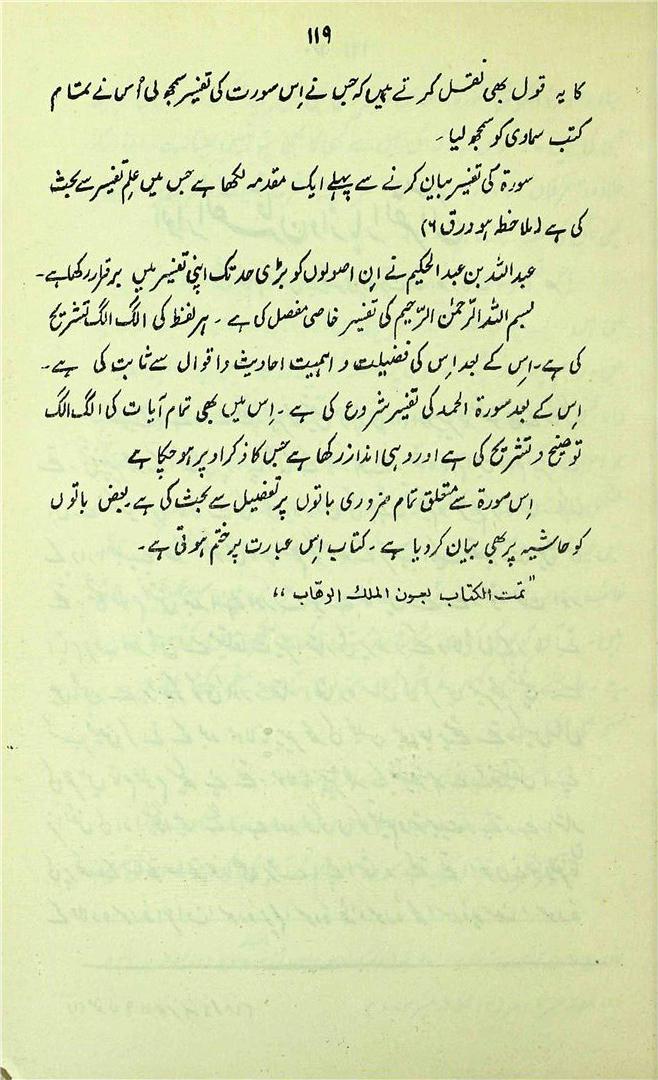 ۱۱۹
کا یہ قول بھی نقل کرتے ہیں کہ جس نے اِس سورت کی تفسیر سمجھ لی اُس نے تمام
کتب سماوی کو سمجھ لیا۔
سورۃ کی تفسیر بیان کرنے سے پہلے ایک مقدمہ لکھا ہے جس میں علم تفسیر سے بحث
کی ہے (ملاخطہ ہو ورق ۶)
عبداللہ بن عبدالحکیم نے ان اصولوں کو بڑی حد تک اپنی تفسیر میں برقرار رکھا ہے۔
بسم اللہ الرّحمٰن الرّحیم کی تفسیر خاصی مفصل کی ہے۔ ہر لفظ کی الگ الگ تشریح
کی ہے۔ اِس کے بعد اس کی فضیلت و اہمیت احادیث و اقوال سے ثابت کی ہے۔
اس کے بعد سورۃ الحمد کی تفسیر شروع کی ہے۔ اِس میں بھی تمام آیات کی الگ الگ
توضیح و تشریح کی ہے اور وہی انداز رکھا ہے جس کا ذکر اوپر ہو چکا ہے
اِس سورۃ سے متعلق تمام ضروری باتوں پر تفصیل سے بحث کی ہے بعض باتوں
کو حاشیہ پر بھی بیان کر دیا ہے۔ کتاب اس عبارت پر ختم ہوتی ہے۔
"تمت الکتاب بعون الملک الوھّاب"